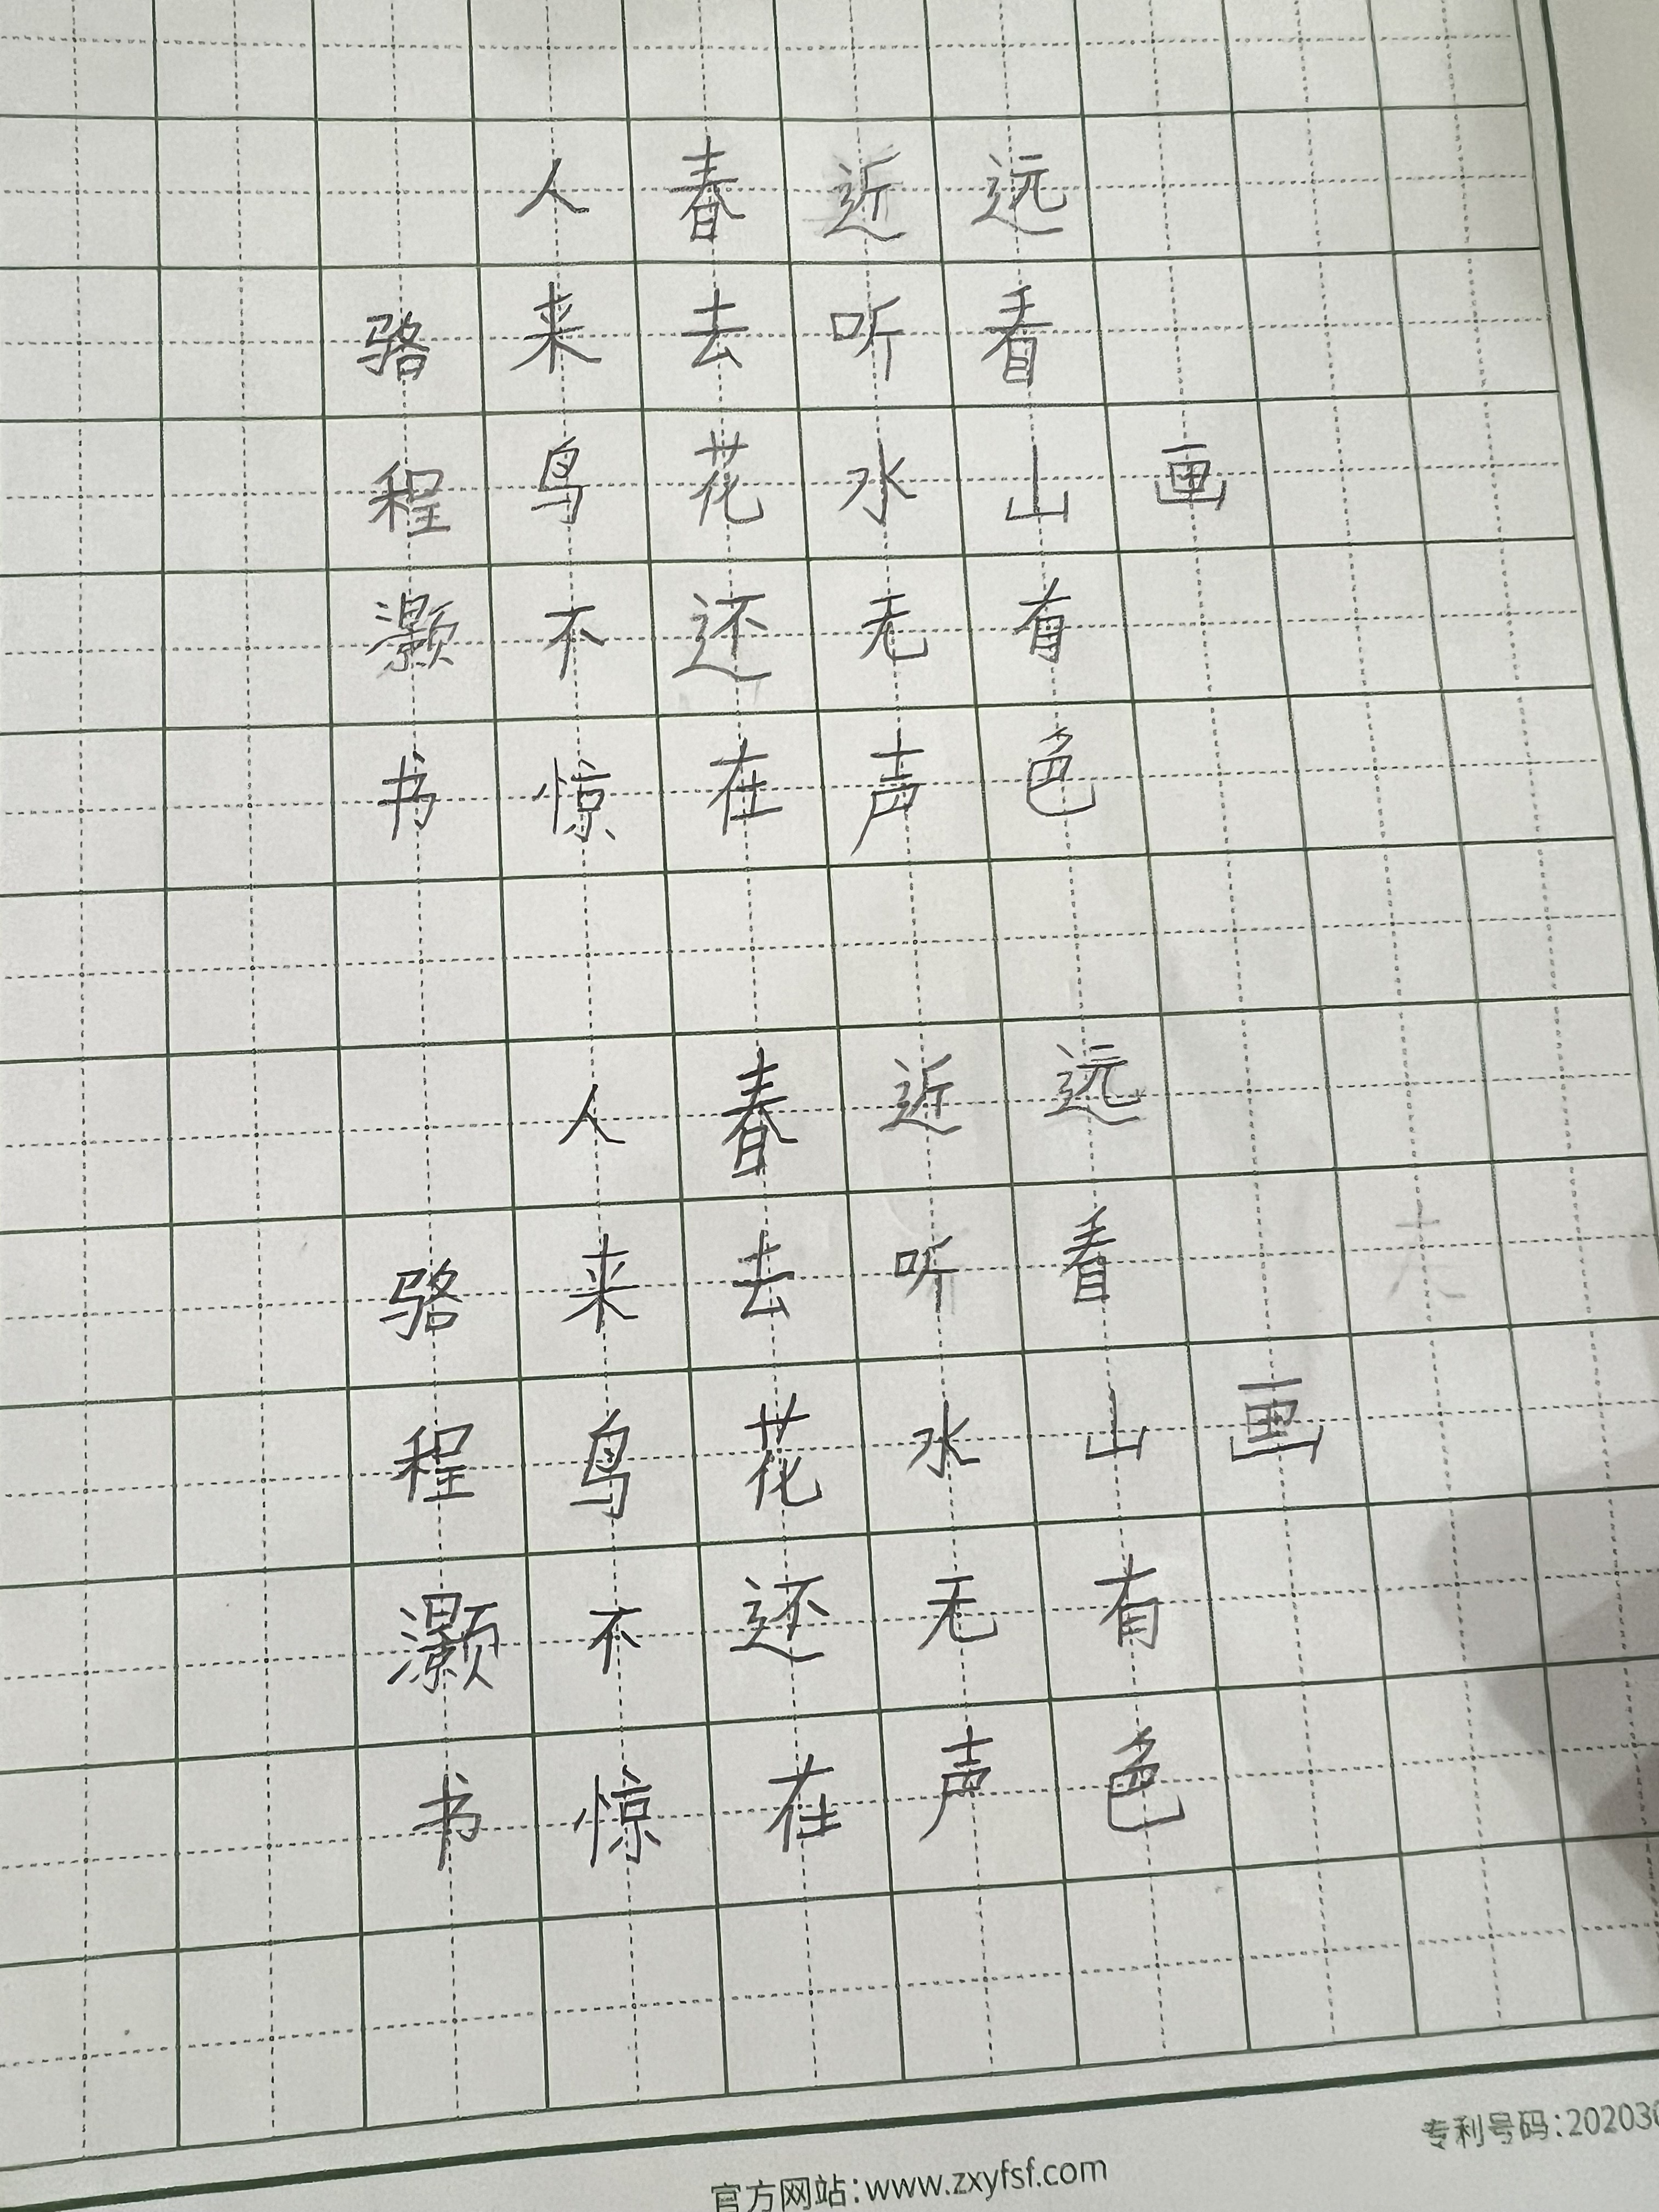 画
远看山有色
近听水无声
春去花还在
人来鸟不惊
骆程灏书
画
远看山有色
近听水无声
春去花还在
人来鸟不惊
骆程灏书
专利号码:202030
官方网站:www.zxyfsf.com